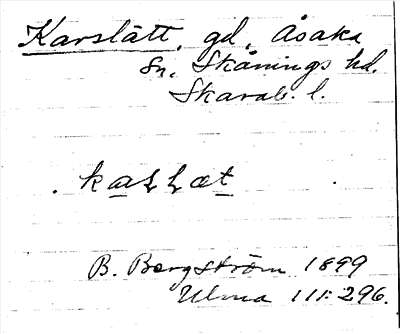 Karslätt, gd, Åsaka
sn, Skånings hd.
Skarab. l.
B. Bergström 1899
Ulma 111:296.